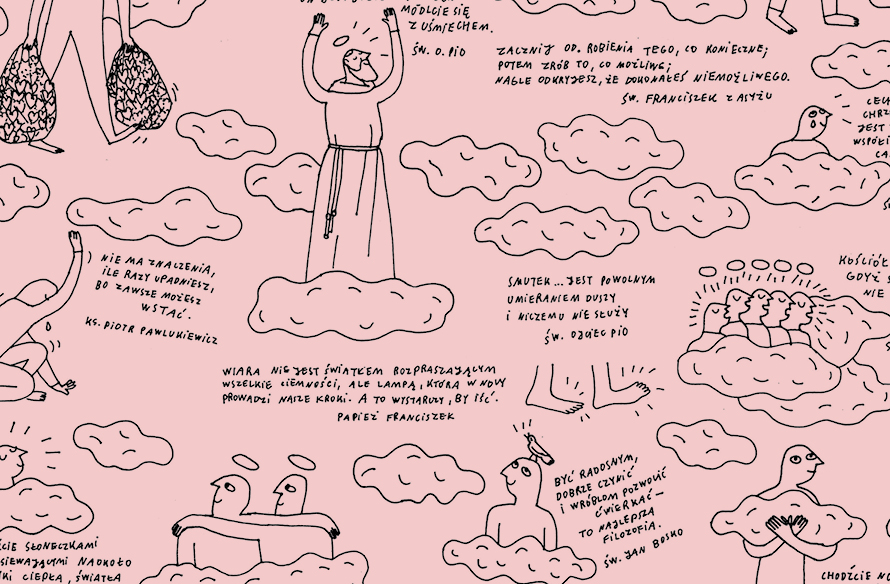 MÓDLCIE SIĘ
Z UŚMIECHEM.
ŚW. O. PIO
ZACZNIJ OD ROBIENIA TEGO, CO KONIECZNE;
POTEM ZRÓB TO, CO MOŻLIWE;
NAGLE ODKRYJESZ, ŻE DOKONAŁEŚ NIEMOŻLIWEGO.
ŚW. FRANCISZEK Z ASYŻU
JEST
NIE MA ZNACZENIA,
ILE RAZY UPADNIESZ,
BO ZAWSZE MOŻESZ
WSTAĆ.
KS. PIOTR PAWLUKIEWICZ
SMUTEK... JEST POWOLNYM
UMIERANIEM DUSZY
I NICZEMU NIE SŁUŻY
ŚW. OJCIEC PIO
KOŚCIÓŁ
GDYŻ
NIE
WIARA NIE JEST ŚWIATŁEM ROZPRASZAJĄCYM
WSZELKIE CIEMNOŚCI, ALE LAMPĄ, KTÓRA W NOCY
PROWADZI NASZE KROKI. A TO WYSTARCZY, BY IŚĆ.
PAPIEŻ FRANCISZEK
BYĆ RADOSNYM,
DOBRZE CZYNIĆ
I WRÓBLOM POZWOLIĆ
ĆWIERKAĆ —
TO NAJLEPSZA
FILOZOFIA.
ŚW. JAN BOSKO
SŁONECZKAMI
NAOKOŁO
CIEPŁA, ŚWIATŁA
CHODŹCIE